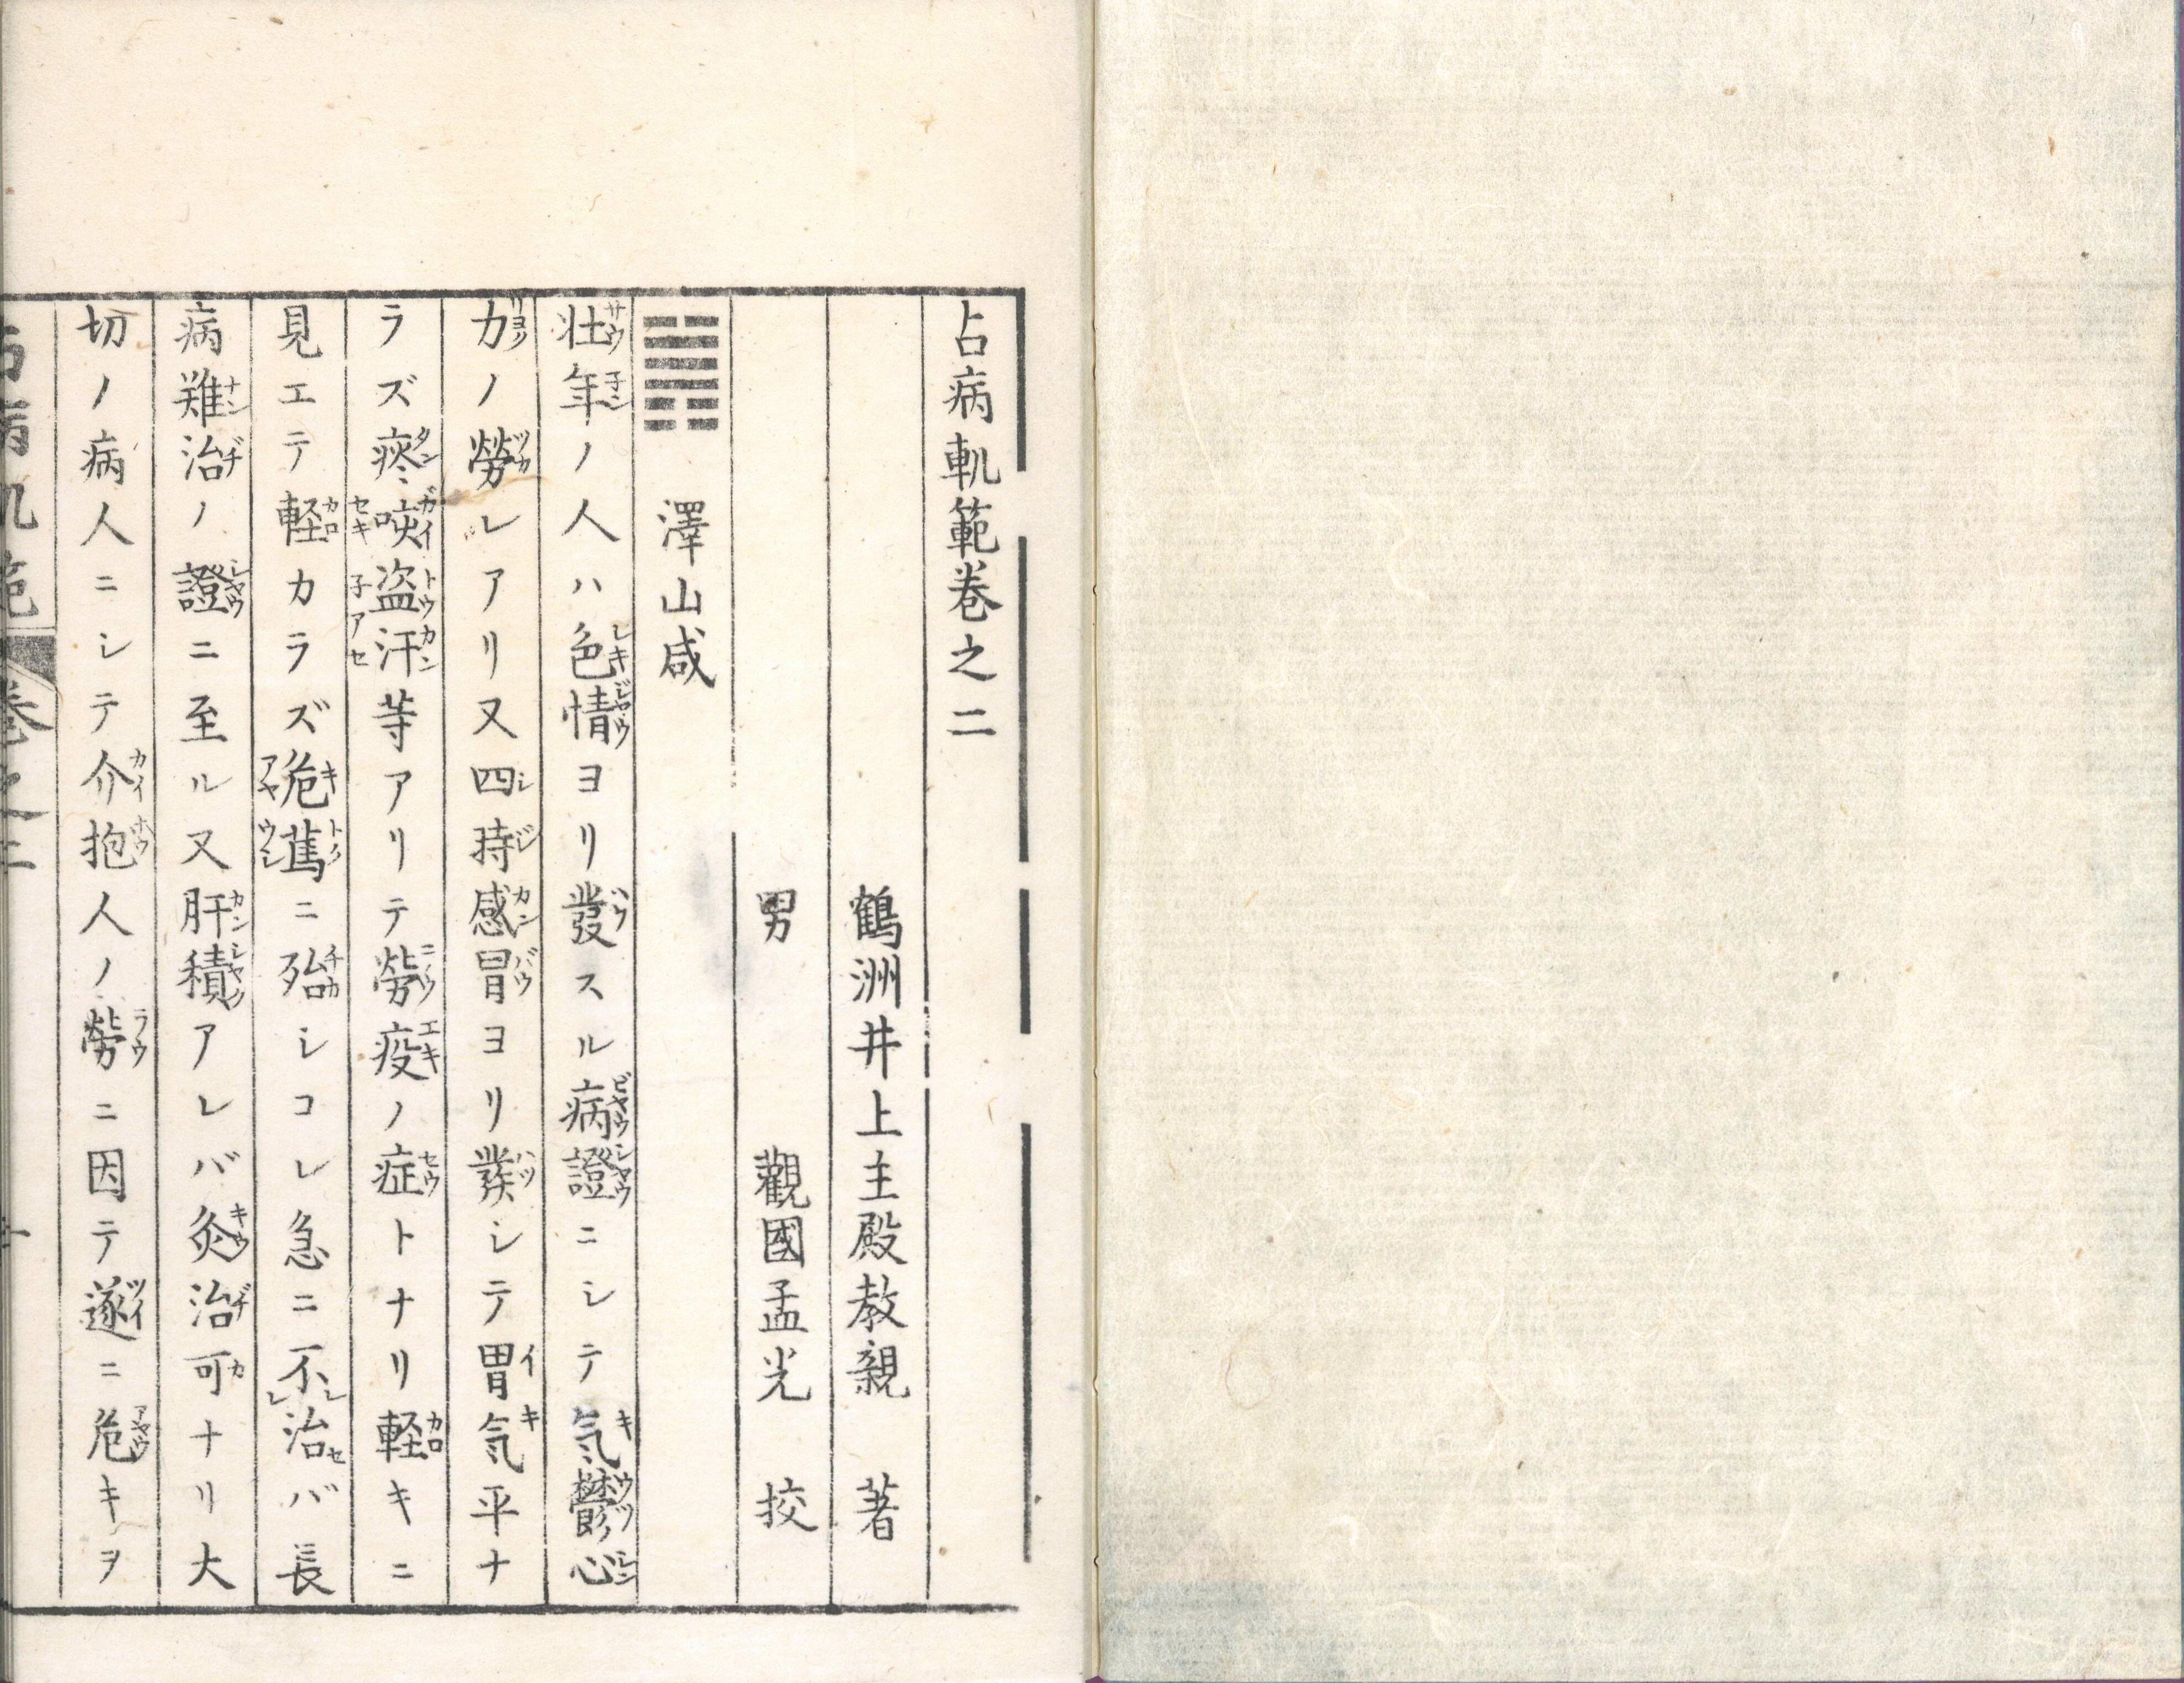 占病軌範卷之二
鶴洲井上主殿教親　著
男　觀國孟光　挍
澤山咸
壮年ノ人ハ色情ヨリ發スル病證ニシテ気鬱心
力ノ勞レアリ又四時感冒ヨリ發シテ胃気平ナ
ラズ痰咳盗汗等アリテ勞疫ノ症トナリ軽キニ
見エテ軽カラズ危篤ニ殆シコレ急ニ不レ治セバ長
病難治ノ證ニ至ル又肝積アレバ灸治可ナリ大
切ノ病人ニシテ介抱人ノ勞ニ因テ遂ニ危キヲ
占病軌範　卷之二